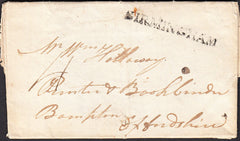 BIRMINGHAM
Mr Wm Holloway
Printer & Bookbinder
Bampton
Oxfordshire